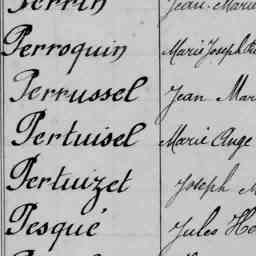 Perrin Jean-Marie
Perroquin Marie Joseph
Perrussel Jean Mar
Pertuisel Marie Ange
Pertuizet Joseph M
Pesqué Jules He